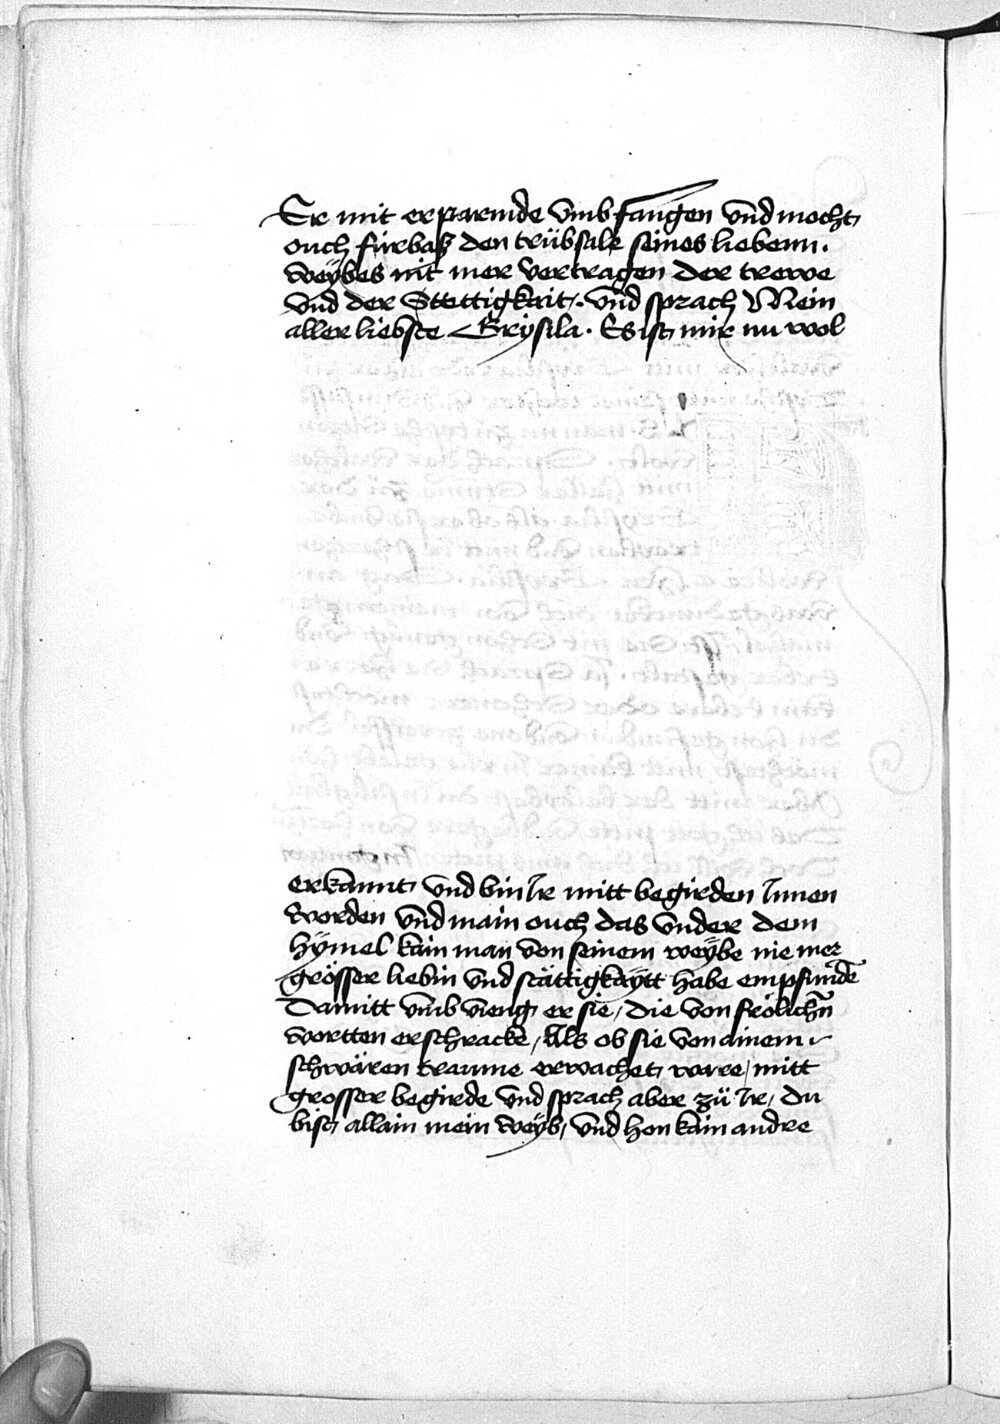 Er mit erparmde vmbfangen vnd mocht
ouch fürbaß den trübsale seines liebenn.
weybes nit mer vertragen der trewe
vnd der Stettigkait. vnd sprach Mein
aller liebste Grysila. Es ist mir nu wol
erkannt vnd bin Ir mitt begirden Innen
worden vnd main ouch das vnder dem
hÿmel kain man von seinem weybe nie mer
grösser liebin vnd stättigkaytt habe empfunden
Damitt vmb vieng er sie / die von frölichen
wortten erschracke / Als ob sie von ainem
schwären traume erwachet ware / mitt
grosser begirde vnd sprach aber zü Ir / du
bist allain mein weyb / vnd hon kain andre